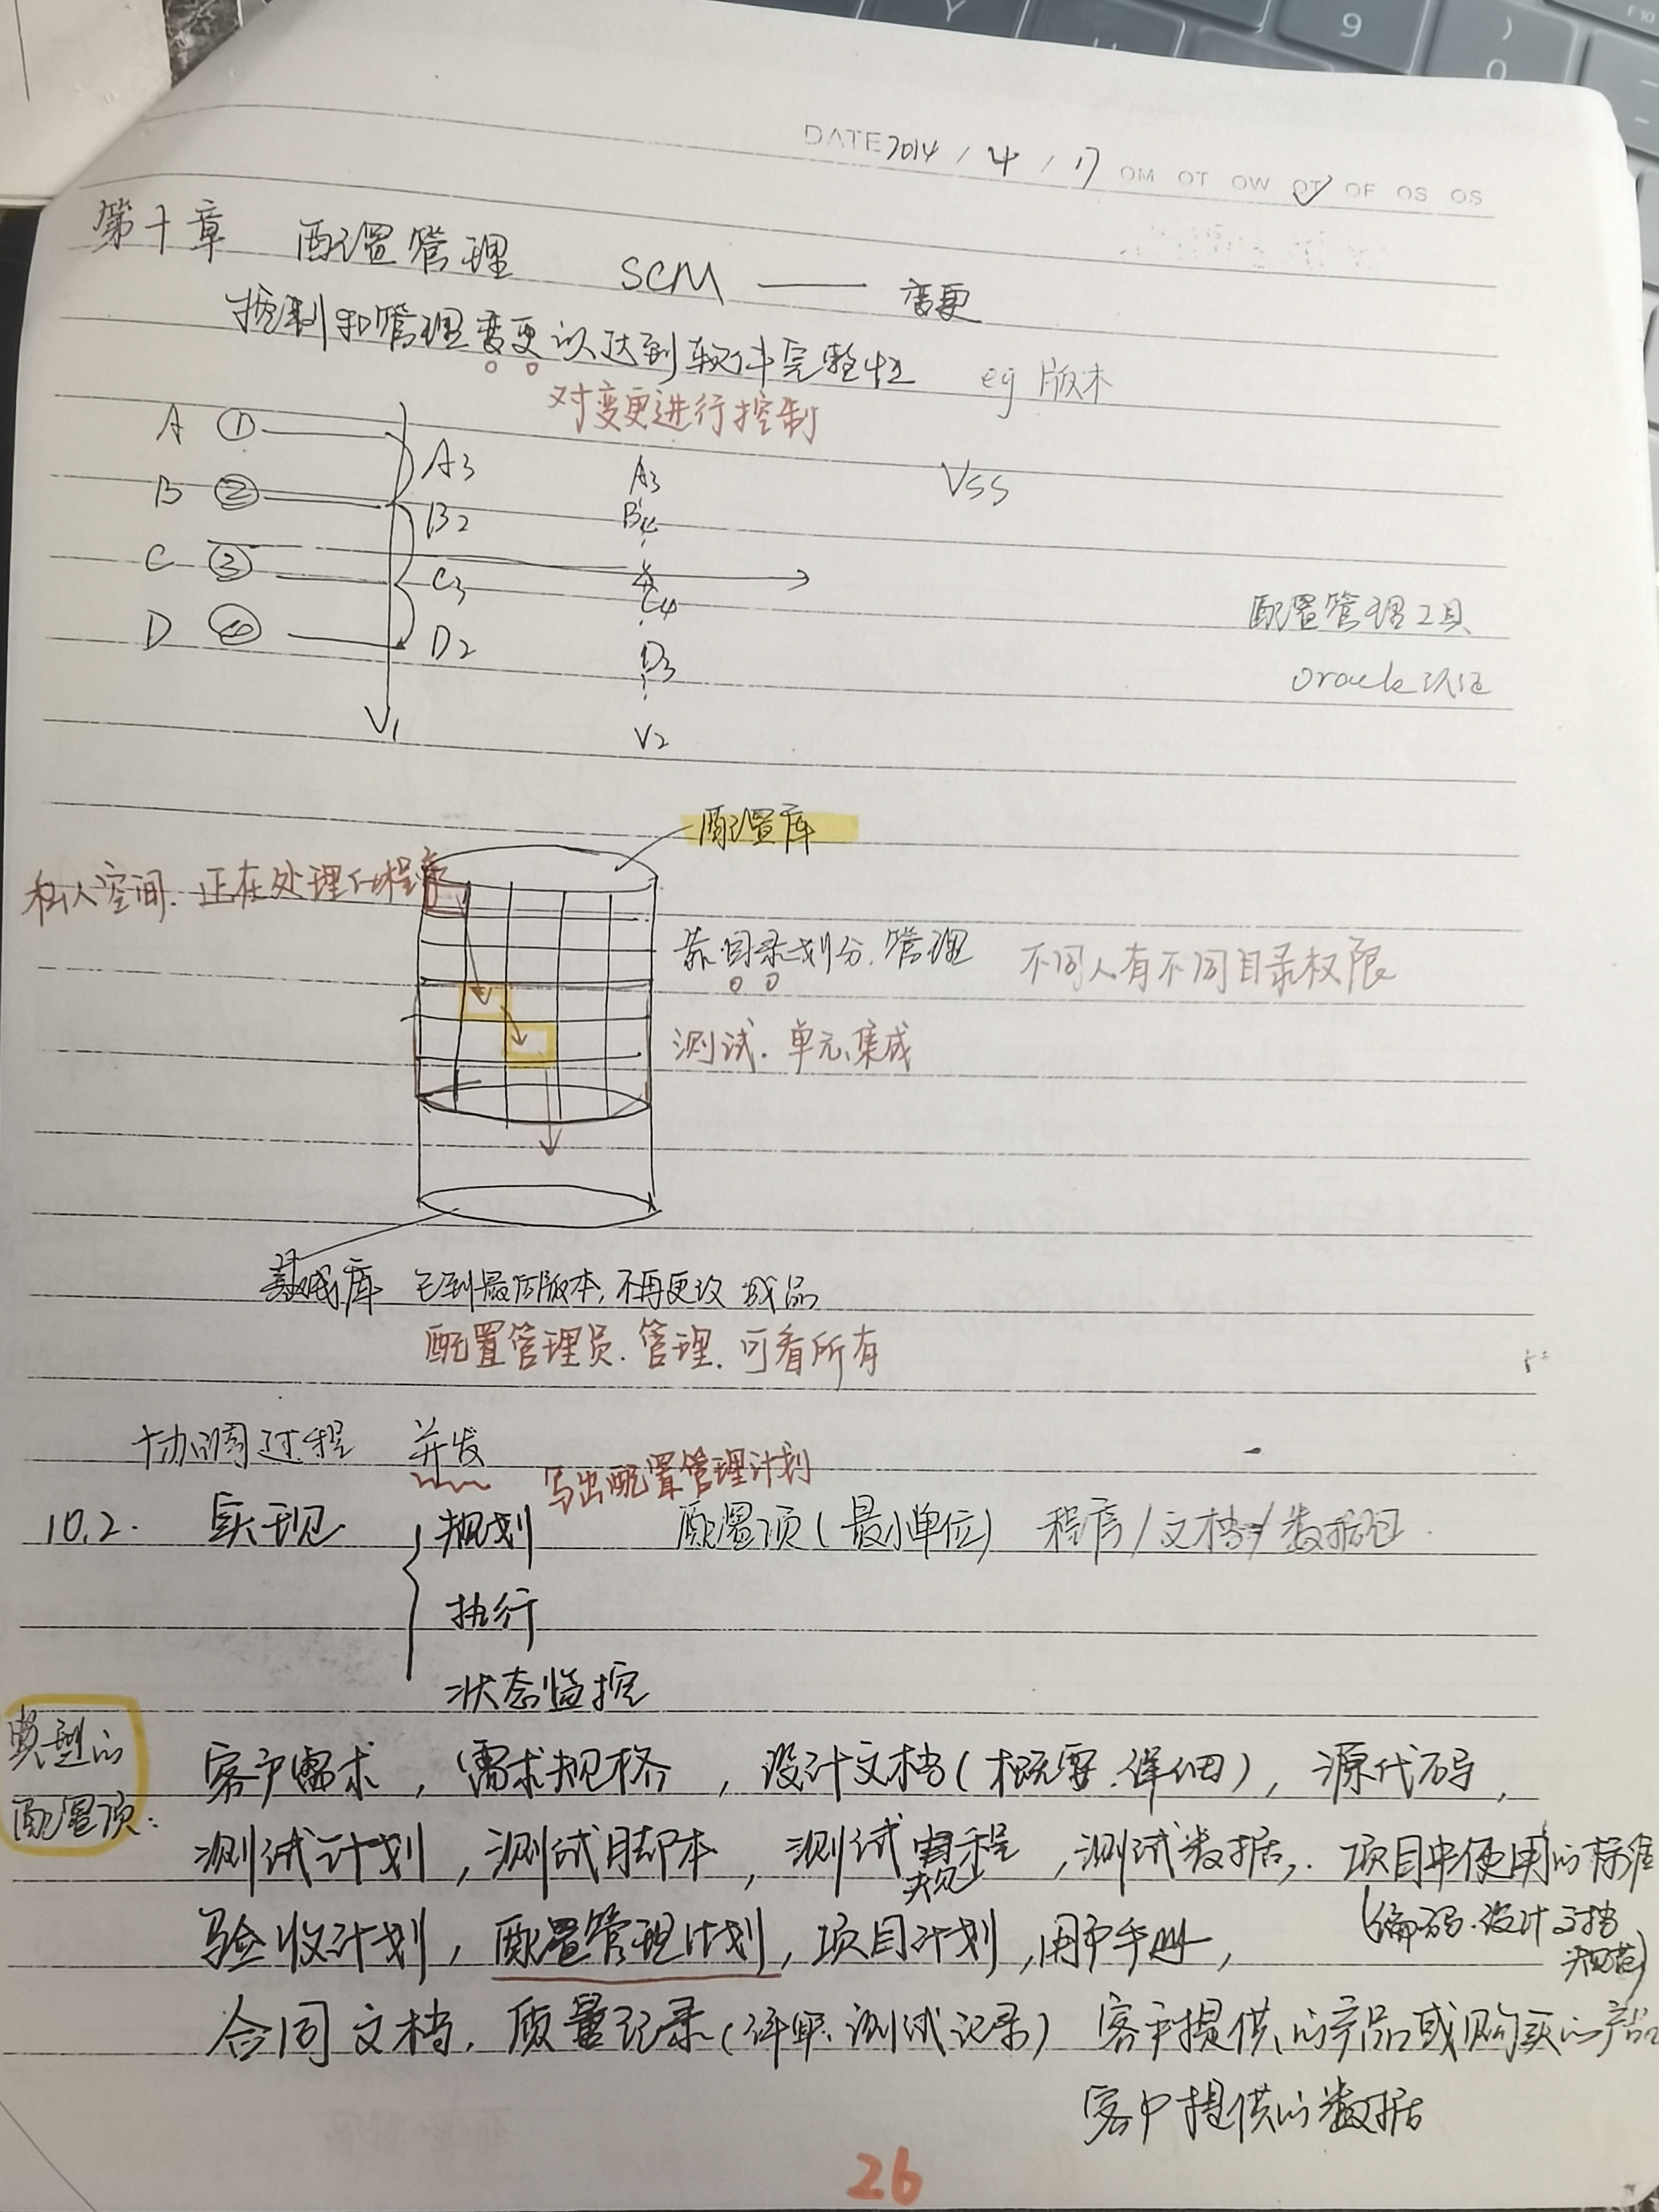 DATE 2014 / 4 / 17 OM OT OW OT OF OS OS
第十章 配置管理 SCM —— 变更
控制和管理变更以达到软件完整性 eg 版本
对变更进行控制
A ① A3 A3 VSS
B ② B2 B4
C ③ C3 C4
配置管理工具
D ④ D2 D3
oracle认证
V1 V2
配置库
私人空间. 正在处理的程序
靠目录划分.管理 不同人有不同目录权限
测试. 单元集成
基线库 已到最后版本,不再更改 成品
配置管理员. 管理. 可看所有
协调过程 并发
写出配置管理计划
10.2. 实现 规划 配置项(最小单位) 程序/文档/数据
执行
状态监控
典型的
配置项:
客户需求,需求规格,设计文档(概要.详细),源代码,
测试计划,测试脚本,测试规程,测试数据,. 项目中使用的标准
(编码.设计文档
规范)
验收计划,配置管理计划,项目计划,用户手册,
合同文档, 质量记录(评审.测试记录) 客户提供的产品或购买的产品
客户提供的数据
26